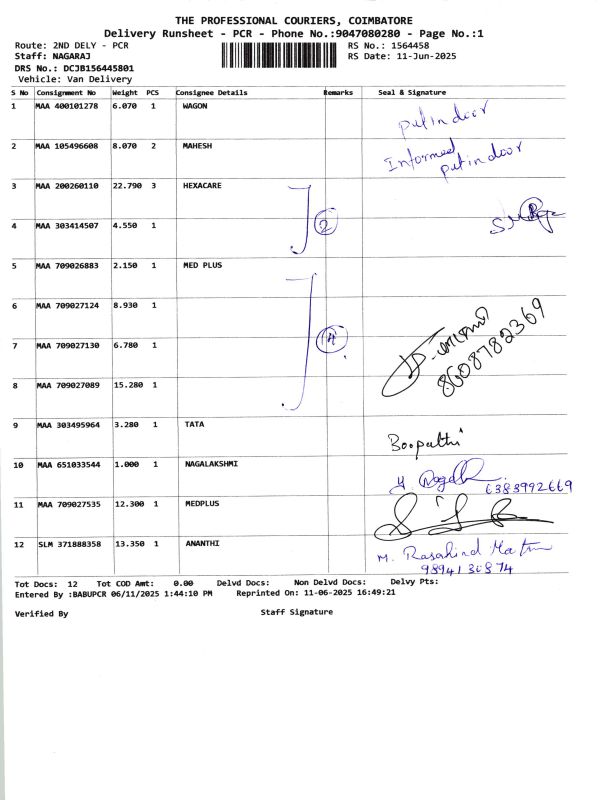 THE PROFESSIONAL COURIERS, COIMBATORE
Delivery Runsheet - PCR - Phone No.:9047080280 - Page No.:1
Route: 2ND DELY - PCR
RS No.: 1564458
Staff: NAGARAJ
RS Date: 11-Jun-2025
DRS No.: DCJB156445801
Vehicle: Van Delivery
S No Consignment No Weight PCS Consignee Details Remarks Seal & Signature
1 MAA 400101278 6.070 1 WAGON
put in door
2 MAA 105496608 8.070 2 MAHESH
Informed
put in door
3 MAA 200260110 22.790 3 HEXACARE
2
4 MAA 303414507 4.550 1
5 MAA 709026883 2.150 1 MED PLUS
6 MAA 709027124 8.930 1
4
7 MAA 709027130 6.780 1
8608782369
8 MAA 709027089 15.280 1
9 MAA 303495964 3.280 1 TATA
Boopathi
10 MAA 651033544 1.000 1 NAGALAKSHMI
6383992669
11 MAA 709027535 12.300 1 MEDPLUS
12 SLM 371888358 13.350 1 ANANTHI
M.
9894130874
Tot Docs: 12 Tot COD Amt: 0.00 Delvd Docs: Non Delvd Docs: Delvy Pts:
Entered By :BABUPCR 06/11/2025 1:44:10 PM Reprinted On: 11-06-2025 16:49:21
Verified By Staff Signature